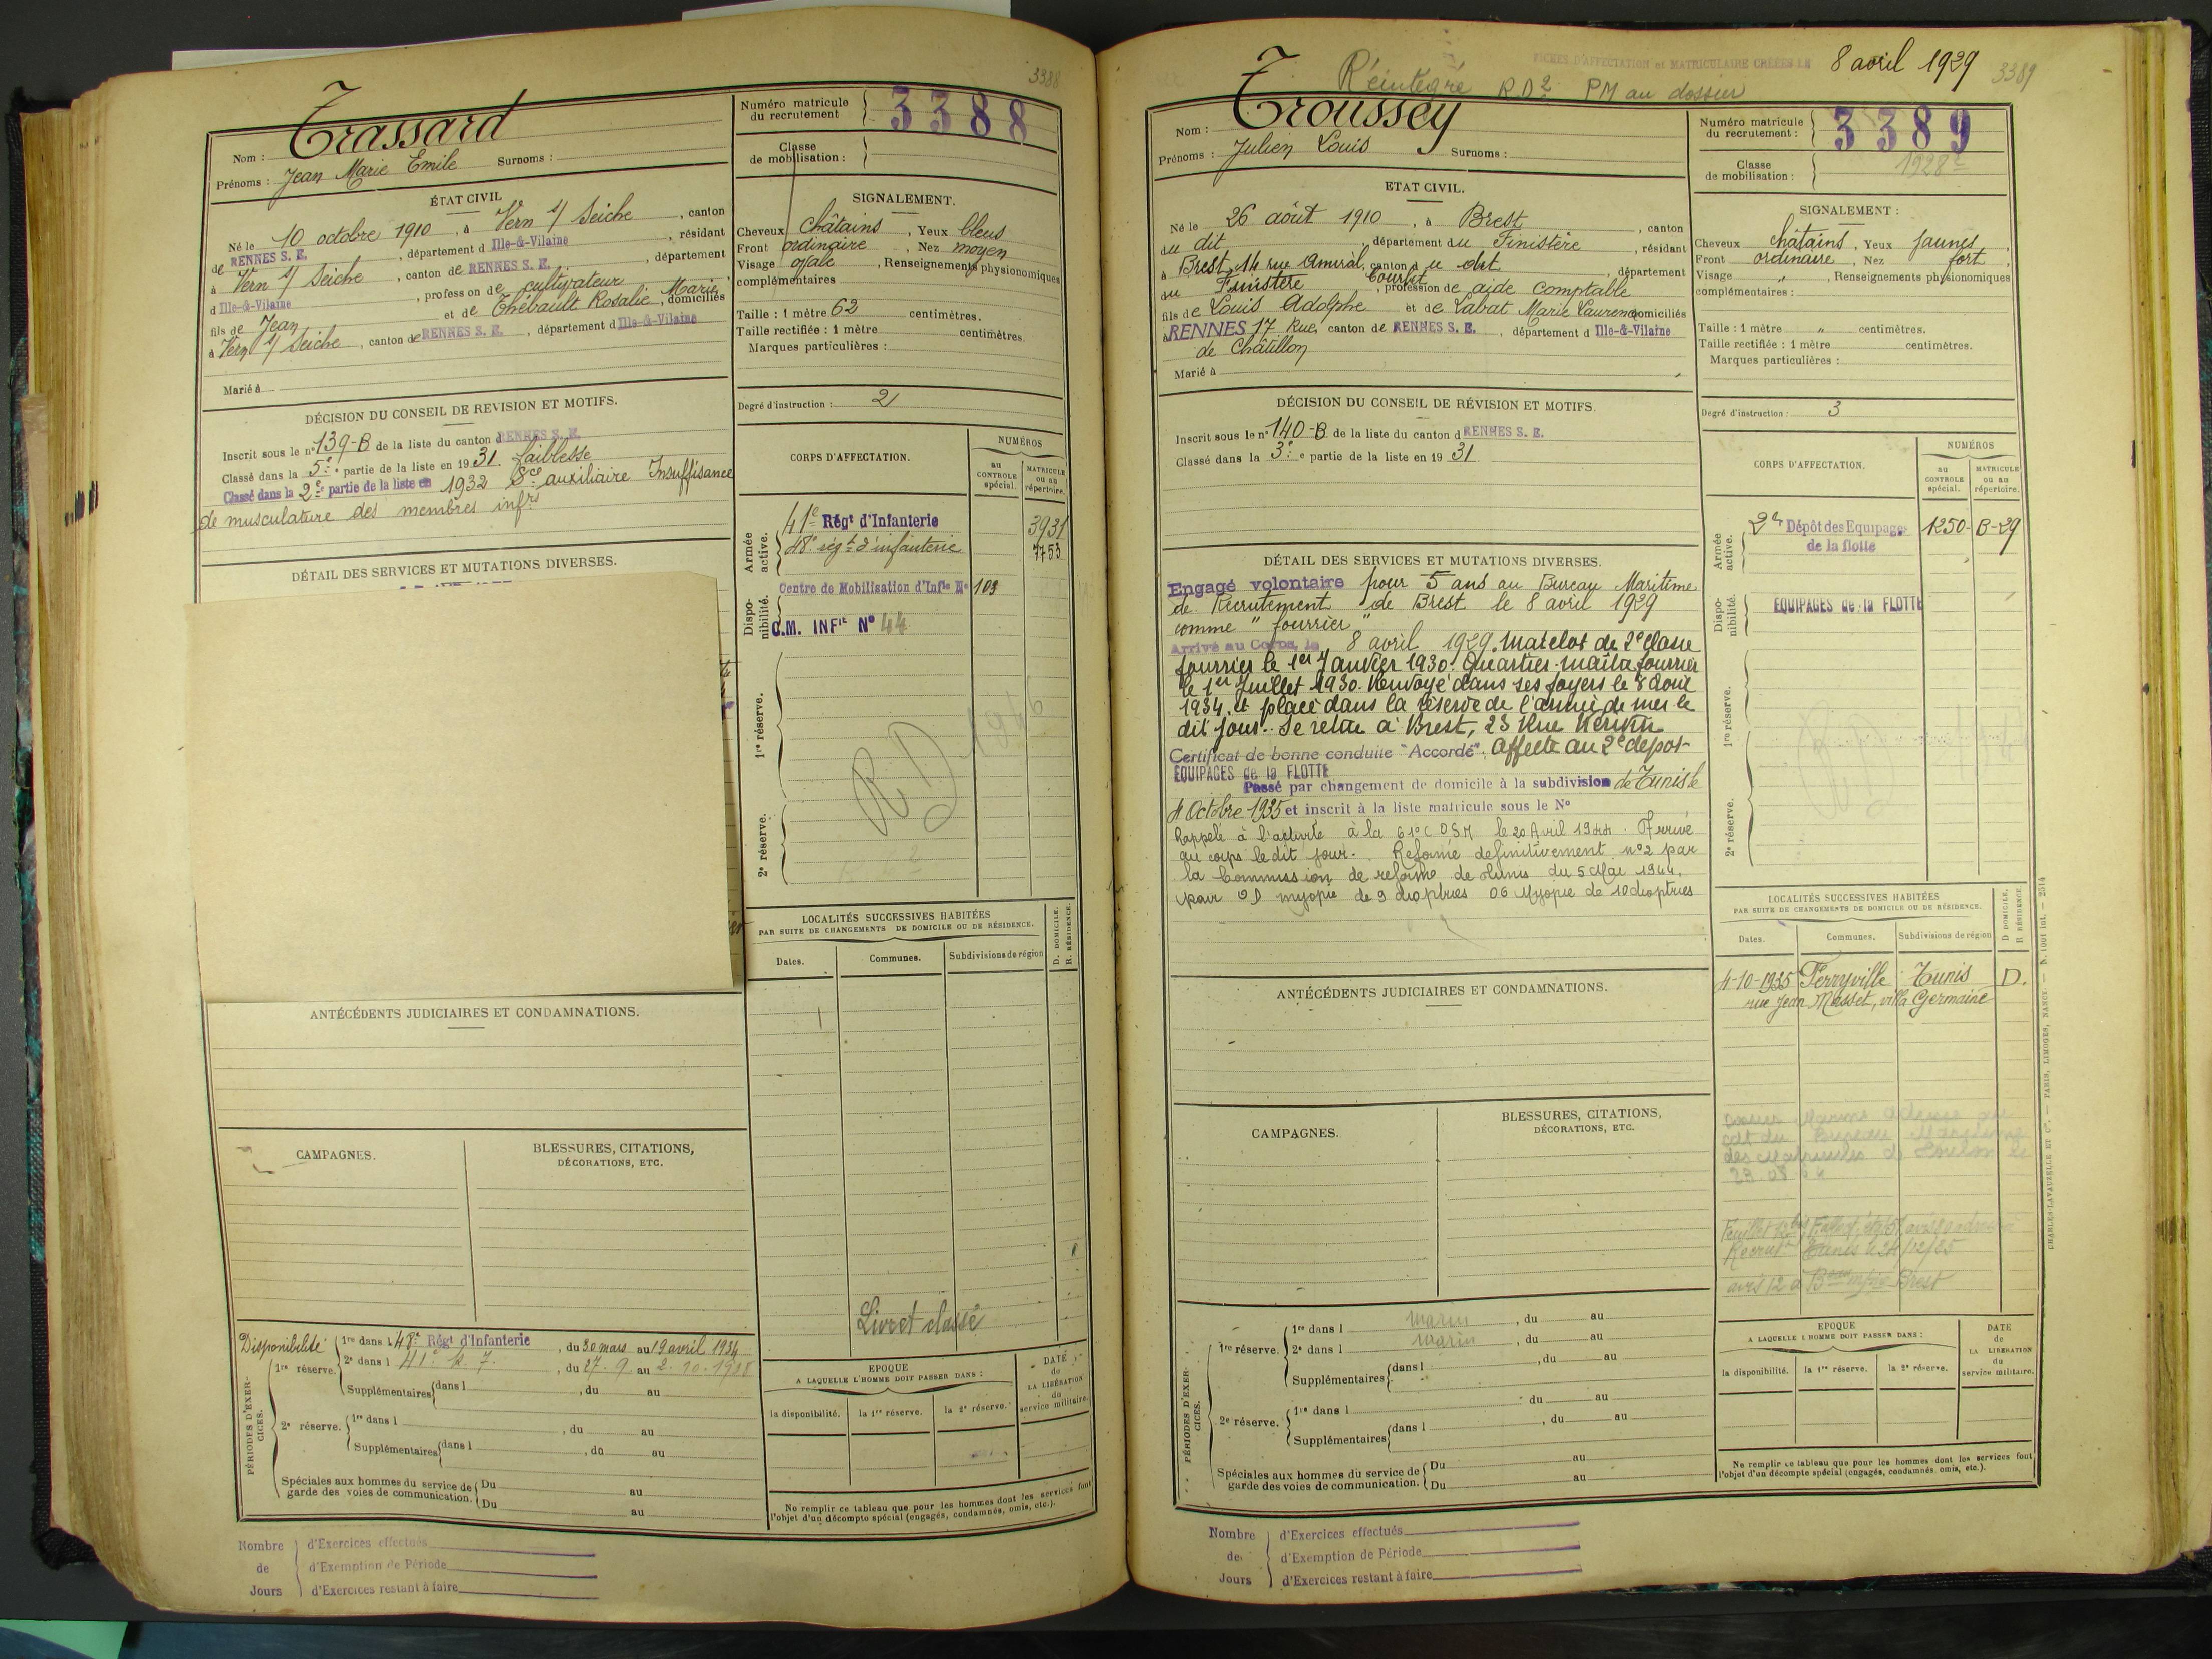 3388
Nom : Trassard
Prénoms : Jean Marie Emile Surnoms :
Numéro matricule du recrutement 3388
Classe de mobilisation :
ÉTAT CIVIL
Né le 10 octobre 1910, à Vern s/ Seiche, canton
de RENNES S. E., département d Ille-&-Vilaine, résidant
à Vern s/ Seiche, canton de RENNES S. E., département
d Ille-&-Vilaine, profession de cultivateur
fils de Jean et de Thébault Rosalie Marie, domiciliés
à Vern s/ Seiche, canton de RENNES S. E., département d Ille-&-Vilaine
Marié à
SIGNALEMENT.
Cheveux châtains, Yeux bleus
Front ordinaire, Nez moyen
Visage ovale, Renseignements physionomiques
complémentaires
Taille : 1 mètre 62 centimètres.
Taille rectifiée : 1 mètre centimètres.
Marques particulières :
Degré d'instruction : 2
DÉCISION DU CONSEIL DE REVISION ET MOTIFS.
Inscrit sous le n° 139-B de la liste du canton d RENNES S. E.
Classé dans la 5e partie de la liste en 1931. faiblesse
Classé dans la 2e partie de la liste en 1932 Sce auxiliaire Insuffisance
de musculature des membres infrs
DÉTAIL DES SERVICES ET MUTATIONS DIVERSES.
CORPS D'AFFECTATION.
NUMÉROS
au CONTROLE spécial.
MATRICULE ou au répertoire.
Armée active.
41e Régt d'Infanterie 3931
48e régt d'infanterie 7753
Disponibilité.
Centre de Mobilisation d'Infie N° 103
C.M. INFIE N° 44
1re réserve.
RD 1946
2e réserve.
LOCALITÉS SUCCESSIVES HABITÉES
PAR SUITE DE CHANGEMENTS DE DOMICILE OU DE RÉSIDENCE.
D. DOMICILE.
R. RÉSIDENCE.
Dates. Communes. Subdivisions de région
Livret classé
ANTÉCÉDENTS JUDICIAIRES ET CONDAMNATIONS.
CAMPAGNES.
BLESSURES, CITATIONS,
DÉCORATIONS, ETC.
PÉRIODES D'EXERCICES.
Disponibilité 1re dans l 48e Régt d'Infanterie, du 30 mars au 19 avril 1934
1re réserve. 2e dans l 41e, du 27.9. au 2.10.1938
Supplémentaires dans l, du au
2e réserve. 1re dans l, du au
Supplémentaires dans l, du au
Spéciales aux hommes du service de Du au
garde des voies de communication. Du au
EPOQUE
A LAQUELLE L'HOMME DOIT PASSER DANS :
la disponibilité. la 1re réserve. la 2e réserve.
DATE de LA LIBÉRATION du service militaire.
Ne remplir ce tableau que pour les hommes dont les services font
l'objet d'un décompte spécial (engagés, condamnés, omis, etc.).
Nombre de Jours
d'Exercices effectués
d'Exemption de Période
d'Exercices restant à faire
FICHES D'AFFECTATION et MATRICULAIRE CRÉÉES LE 8 avril 1929
3389
Réintégré RD2 PM au dossier
Nom : Troussey
Prénoms : Julien Louis Surnoms :
Numéro matricule du recrutement : 3389
Classe de mobilisation : 1928
ETAT CIVIL.
Né le 26 août 1910, à Brest, canton
du dit, département du Finistère, résidant
à Brest, 14 rue Amiral Courbet, canton du dit, département
du Finistère, profession de aide comptable
fils de Louis Adolphe et de Labat Marie Laurence domiciliés
à RENNES 17 Rue, canton de RENNES S. E., département d Ille-&-Vilaine
de Châtillon
Marié à
SIGNALEMENT :
Cheveux châtains, Yeux jaunes,
Front ordinaire, Nez fort,
Visage ", Renseignements physionomiques
complémentaires :
Taille : 1 mètre " centimètres.
Taille rectifiée : 1 mètre centimètres.
Marques particulières :
Degré d'instruction : 3
DÉCISION DU CONSEIL DE RÉVISION ET MOTIFS.
Inscrit sous le n° 140-B de la liste du canton d RENNES S. E.
Classé dans la 3e partie de la liste en 1931
DÉTAIL DES SERVICES ET MUTATIONS DIVERSES.
Engagé volontaire pour 5 ans au Bureau Maritime
de Recrutement de Brest le 8 avril 1929
comme "fourrier"
Arrivé au Corps, le 8 avril 1929. Matelot de 2e classe
fourrier le 1er Janvier 1930. Quartier-maître fourrier
le 1er Juillet 1930. Renvoyé dans ses foyers le 8 août
1934, et placé dans la réserve de l'armée de mer le
dit jour. Se retire à Brest, 23 Rue
Certificat de bonne conduite "Accordé". Affecté au 2e dépôt
EQUIPAGES de la FLOTTE
Passé par changement de domicile à la subdivision de Tunis le
4 Octobre 1935 et inscrit à la liste matricule sous le N°
Rappelé à l'activité à la 61e C.O.S.M le 20 Avril 1944. Arrivé
au corps le dit jour. Réformé définitivement n°2 par
la Commission de réforme de Tunis du 5 Mai 1944.
pour OD myopie de 9 dioptries OG Myopie de 10 dioptries
CORPS D'AFFECTATION.
NUMÉROS
au CONTROLE spécial.
MATRICULE ou au répertoire.
Armée active.
2e Dépôt des Equipages 1250-B-29
de la flotte
Disponibilité.
EQUIPAGES de la FLOTTE
1re réserve.
2e réserve.
LOCALITÉS SUCCESSIVES HABITÉES
PAR SUITE DE CHANGEMENTS DE DOMICILE OU DE RÉSIDENCE.
D DOMICILE.
R RÉSIDENCE.
Dates. Communes. Subdivisions de région
4-10-1935 Ferryville Tunis D.
rue Jean Masset, villa Germaine
ANTÉCÉDENTS JUDICIAIRES ET CONDAMNATIONS.
CAMPAGNES.
BLESSURES, CITATIONS,
DÉCORATIONS, ETC.
PÉRIODES D'EXERCICES.
1re réserve. 1re dans l marin, du au
2e dans l marin, du au
Supplémentaires dans l, du au
2e réserve. 1re dans l du au
Supplémentaires dans l, du au
Spéciales aux hommes du service de Du au
garde des voies de communication. Du au
EPOQUE
A LAQUELLE L'HOMME DOIT PASSER DANS :
la disponibilité. la 1re réserve. la 2e réserve.
DATE de LA LIBÉRATION du service militaire.
Ne remplir ce tableau que pour les hommes dont les services font
l'objet d'un décompte spécial (engagés, condamnés, omis, etc.).
Nombre de Jours
d'Exercices effectués
d'Exemption de Période
d'Exercices restant à faire
CHARLES-LAVAUZELLE ET Cie. — PARIS, LIMOGES, NANCY. — N. 1001 int. — 2514